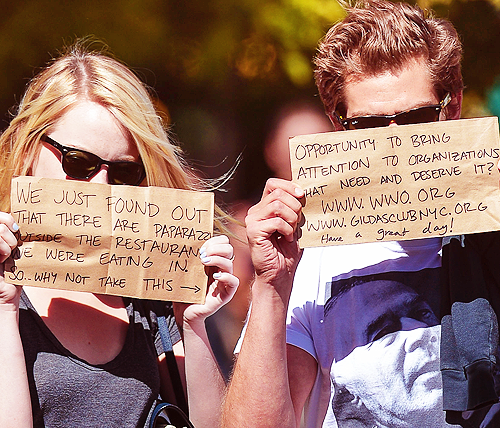 WE JUST FOUND OUT
THAT THERE ARE PAPARAZZI
OUTSIDE THE RESTAURANT
WE WERE EATING IN.
SO...WHY NOT TAKE THIS →
OPPORTUNITY TO BRING
ATTENTION TO ORGANIZATIONS
THAT NEED AND DESERVE IT?
WWW.WWO.ORG
WWW.GILDASCLUBNYC.ORG
Have a great day!